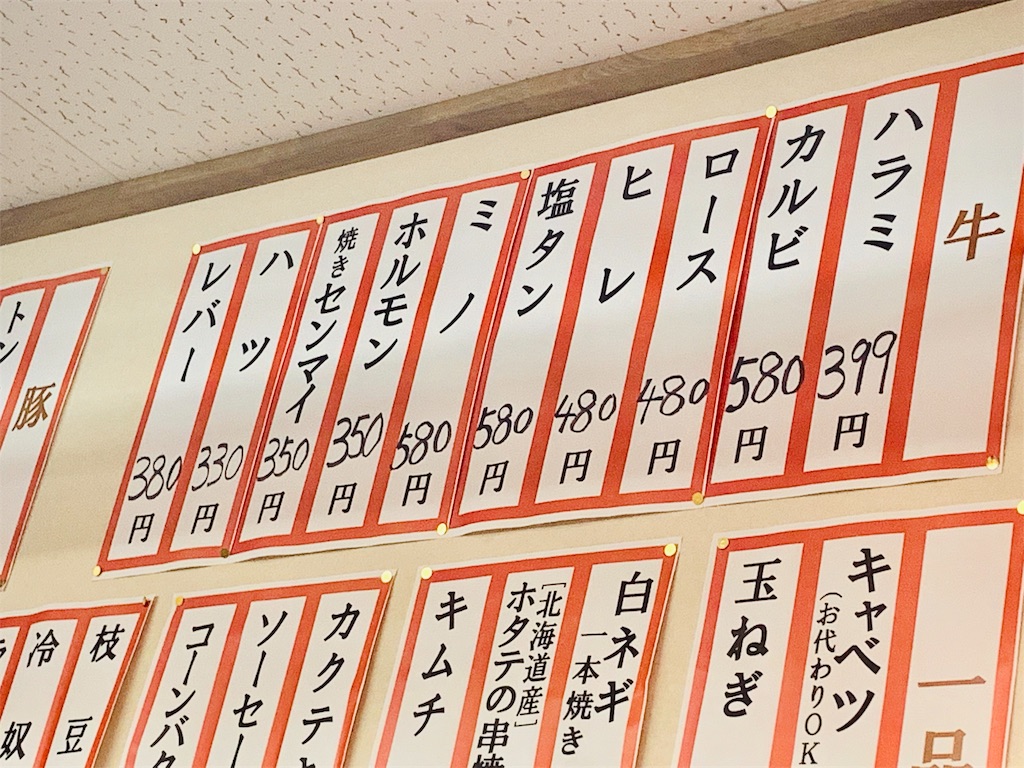 牛
ハラミ 399円
カルビ 580円
ロース 480円
ヒレ 480円
塩タン 580円
ミノ 580円
ホルモン 350円
焼きセンマイ 350円
ハツ 330円
レバー 380円
豚
トン
一品
キャベツ
(お代わりOK
玉ねぎ
白ネギ
一本焼き
[北海道産]
ホタテの串焼
キムチ
カクテ
ソーセー
コーンバタ
枝豆
冷奴